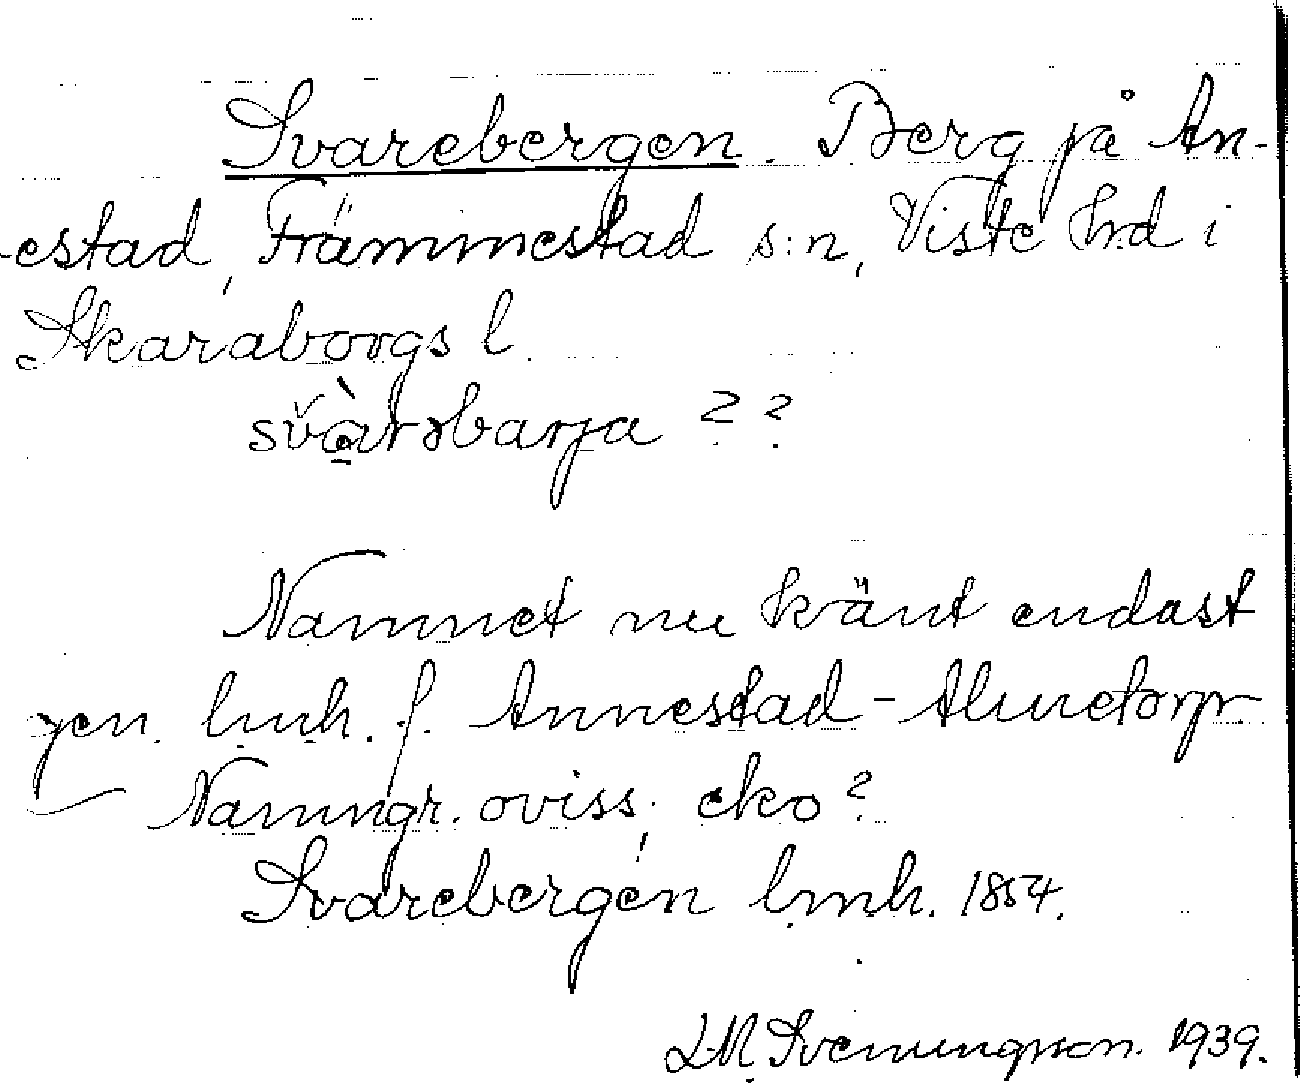 Svarebergen. Berg på An-
estad, Främmestad s:n, Viste hrd i
Skaraborgs l.
svàrəbarja ??
Namnet nu känt endast
gen. lmh. f. Annestad - Alnetorp
Namngr. oviss; eko?
Svarebergen lmh. 1854.
1939.